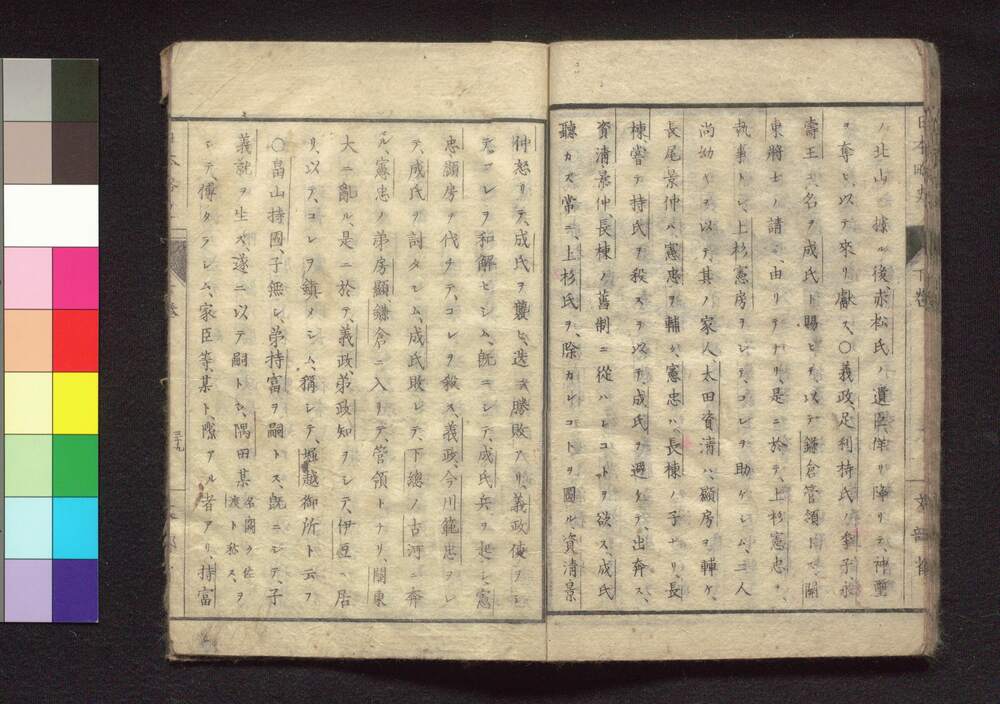 ノ北山ニ據ル後、赤松氏ノ遺臣、佯リ降リテ、神璽
ヲ奪ヒ、以テ來リ獻ス、〇義政足利持氏ノ季子、永
壽王ニ、名ヲ成氏ト賜ヒ、以テ鎌倉管領トス、關
東將士ノ請ニ由リテナリ、是ニ於テ、上杉憲忠ヲ
執事トシ、上杉顯房ヲシテ、コレヲ助ケシム、二人
尚幼キヲ以テ、其ノ家人、太田資清ハ、顯房ヲ輔ケ、
長尾景仲ハ、憲忠ヲ輔ク、憲忠ハ、長棟ノ子ナリ、長
棟嘗テ持氏ヲ殺スヲ以テ、成氏ヲ避ケテ、出奔ス、
資清景仲長棟ノ舊制ニ從ハシコトヲ欲ス、成氏
聽カス、常ニ上杉氏ヲ、除カンコトヲ圖ル、資清景
仲怒リテ、成氏ヲ襲ヒ、迭ニ勝敗アリ、義政使ヲシ
テ、コレヲ和解セシム、既ニシテ、成氏兵ヲ起シ、憲
忠顯房ヲ伐チテ、コレヲ殺ス、義政、今川範忠ヲシ
テ、成氏ヲ討タシム、成氏敗レテ、下總ノ古河ニ奔
ル、憲忠ノ弟房顯鎌倉ニ入リテ、管領トナリ、關東
大ニ亂ル、是ニ於テ、義政弟政知ヲシテ、伊豆ニ居
リ、以テ、コレヲ鎮メシム、稱シテ、堀越御所ト云フ
〇畠山持國、子無シ、弟持富ヲ嗣トス、既ニシテ、子
義就ヲ生ス、遂ニ以テ嗣トシ、隅田某名闕ク佐渡ト称ス、ヲ
シテ、傅タラシム、家臣等、某ト、隙アル者アリ、持富
三十九
文部省